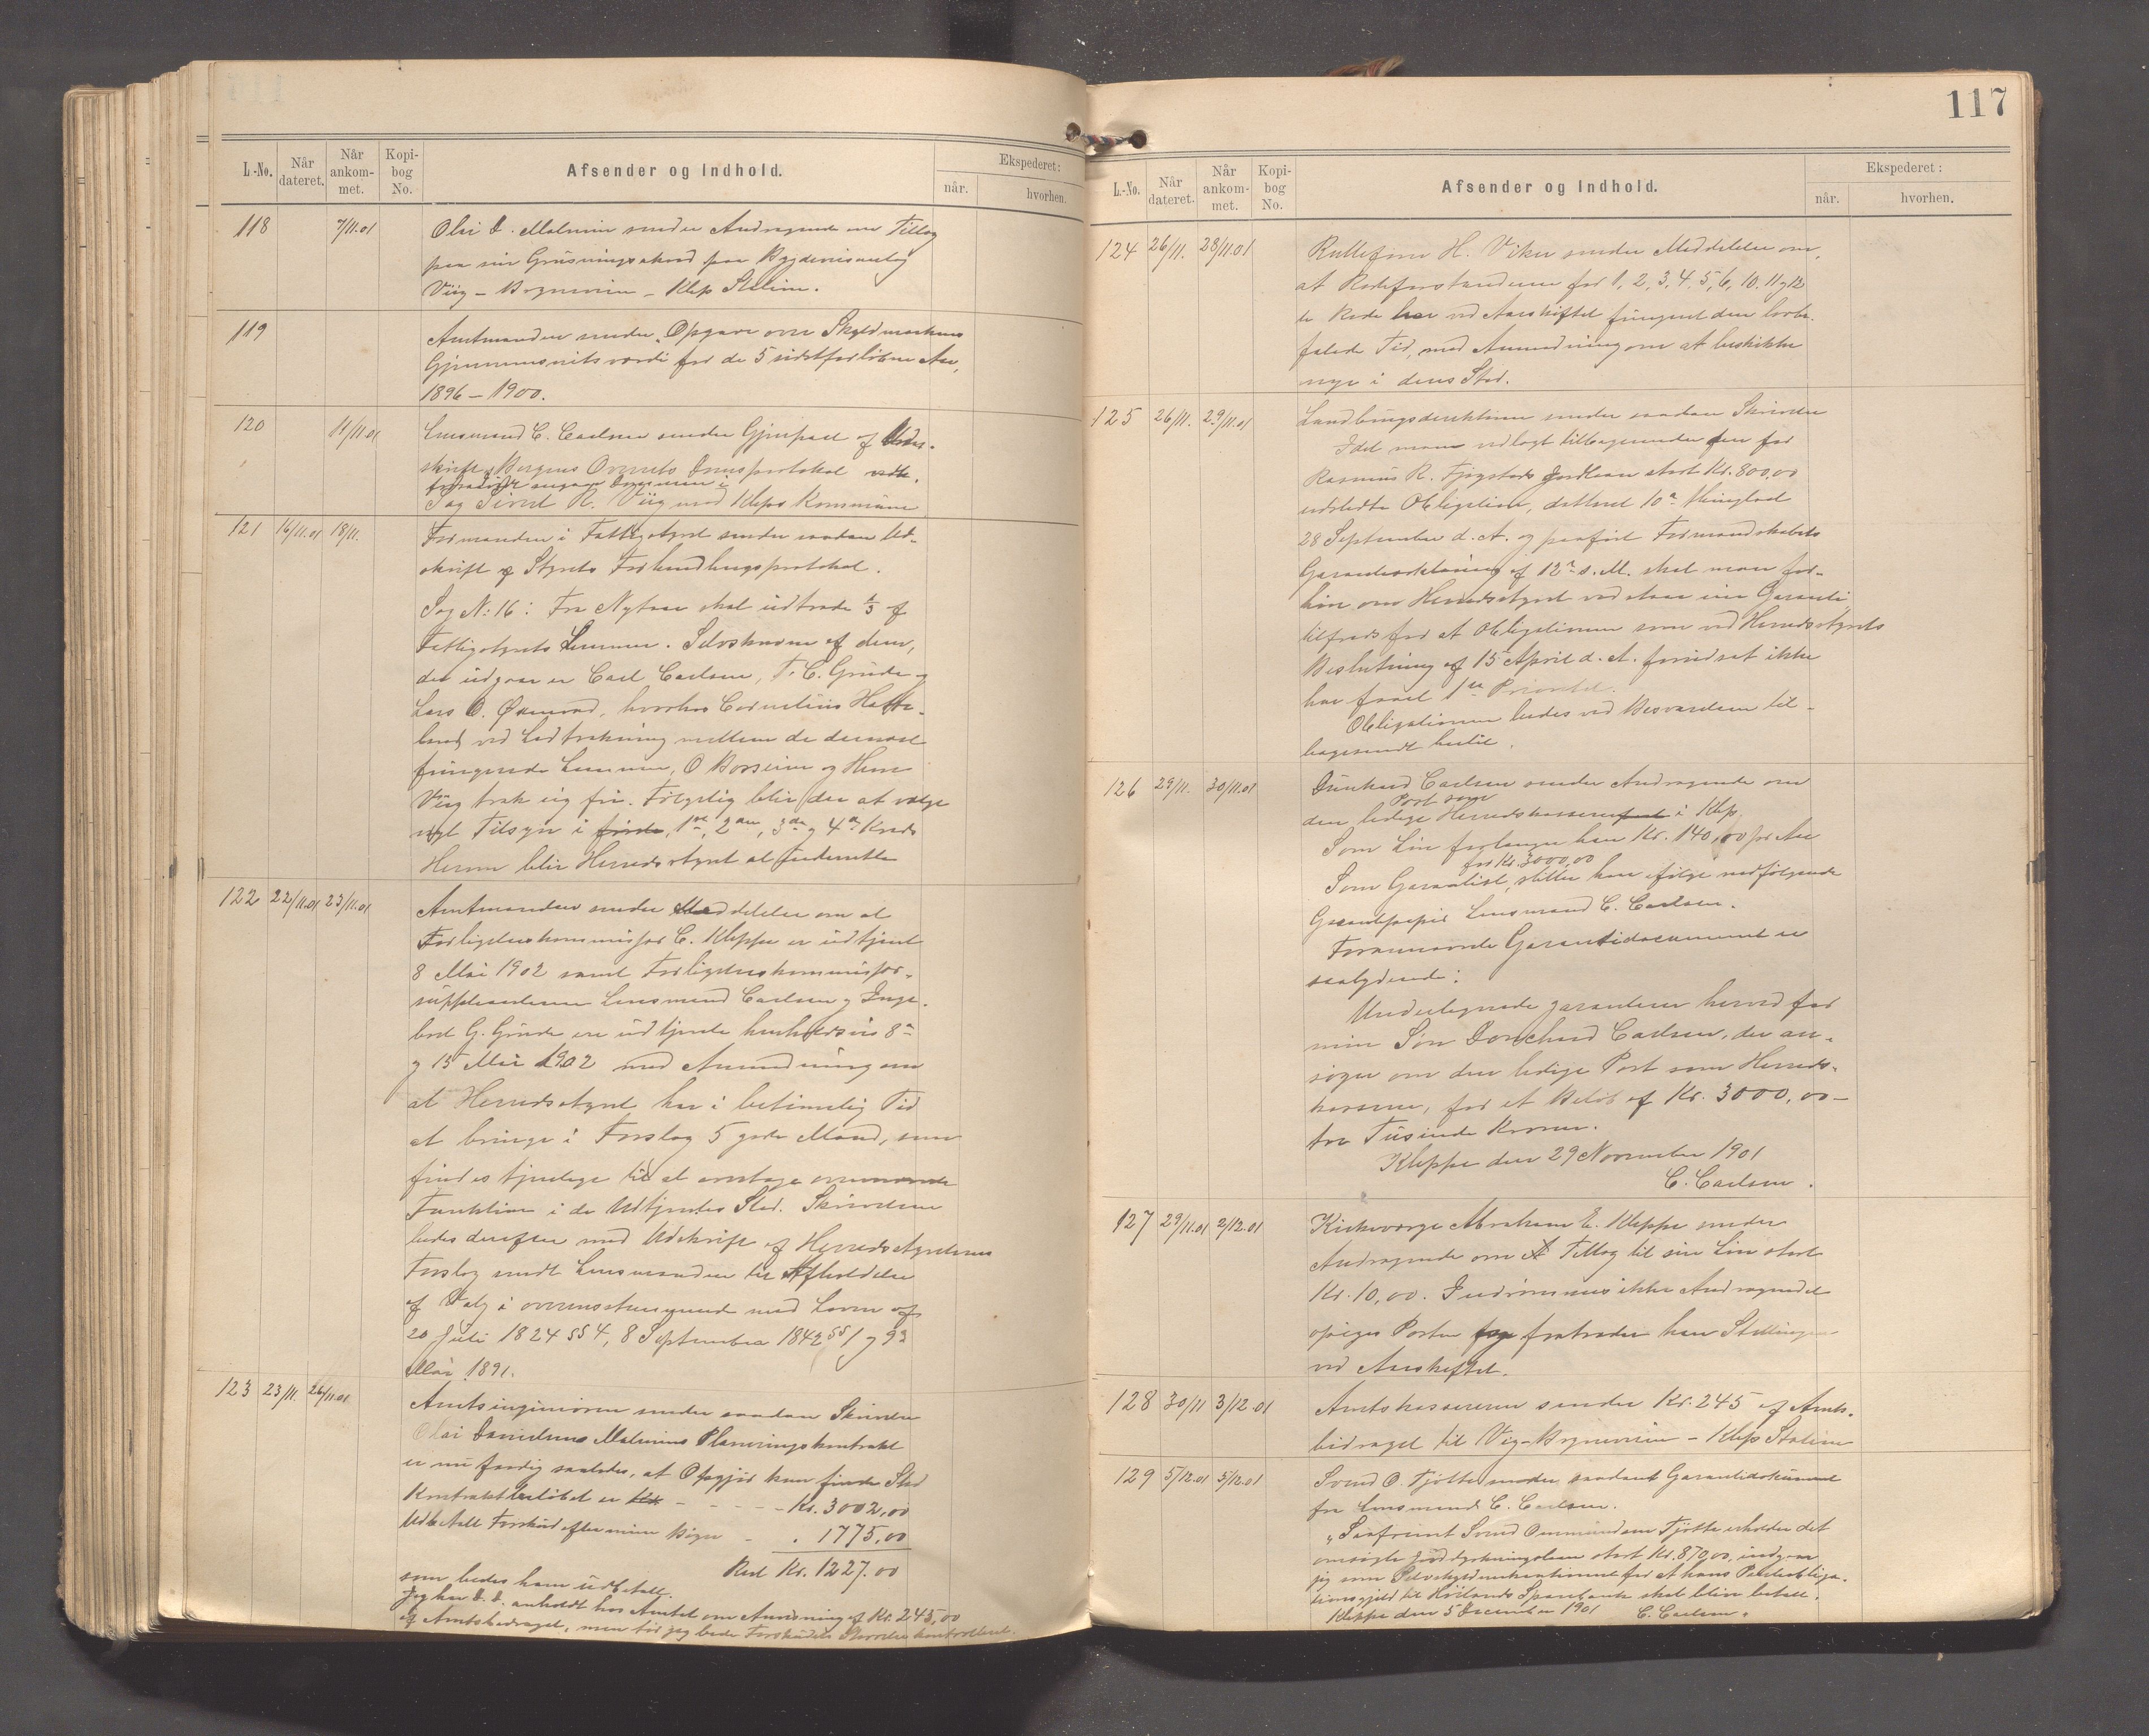 L.-No.
Når dateret.
Når ankommet.
Kopibog No.
Afsender og Indhold.
Ekspederet:
når.
hvorhen.
118
7/11.01
Olai D. Malmin sender Andragende om Tillæg
paa sin Grusningsakord paa Bygdeveianlæg
Viig – Bryneveien – Klep Station.
119
Amtmanden sender Opgave over Skyldmarkens
Gjennemsnitsværdi for de 5 sidstforløbne Aar,
1896 – 1900.
120
11/11.01
Lensmand C. Carlsen sender Gjenpart af Udskrift af
Bergens Overrets Domsprotokol
Sag Sivert R. Viig mod Kleps Kommune
121
16/11.01
18/11.
Formanden i Fattigstyret sender saadan Ud-
skrift af Styrets Forhandlingsprotokol.
Sag No: 16: Fra Nytaar skal udtræde
Fattigstyrets Lemmer. Selvskrevne af dem,
der udgaar er Carl Carlsen, T. C. Grude og
Lars O. Øxnevad, hvorhos Cornelius
ved Lodtrækning mellem de dernæst
fungerende Lemmer, O Borsheim og Hern
Viig trak sig fri. Følgelig blir der at vælge
nyt Tilsyn i 1ste, 2den, 3die og 4de Kreds
Herom blir Herredsstyret at underrette
122
22/11.01
23/11.01
Amtmanden sender Meddelelse om at
Forligelseskommissær C. Kleppe er udtjent
8 Mai 1902 samt Forligelseskommissær-
suppleanterne Lensmand Carlsen og Inge-
bret G. Grude ere udtjente henholdsvis 8de
og 15 Mai 1902 med Anmodning om
at Herredsstyret har i betimelig Tid
at bringe i Forslag 5 gode Mænd, som
findes tjenlige til at overtage omnævnte
Funktion i de Udtjentes Sted. Skrivelsen
bedes derefter med Udskrift af Herredsstyrelsens
Forslag sendt Lensmanden til Afholdelse
af Valg i overensstemmende med Loven af
20 Juli 1824 §§ 4, 8 September 1842 §§ 1 og 93
Mai 1891.
123
23/11.
26/11.01
Amtsingeniøren sender saadan Skrivelse
Olai Danielsens Malmins Planeringskontrakt
er nu færdig saaledes, at Opgjør kan finde Sted
Kontraktbeløbet er – – – – – Kr. 3002,00
Udbetalt Forskud efter mine Bøger – „ 1775,00
Rest Kr. 1227.00
som bedes ham udbetalt.
Jeg har D. D. anholdt hos Amtet om Anvisning af Kr. 245,00
af Amtsbidraget, men før jeg beder Forskuddets Størrelse kontrolleret.
117
L.-No.
Når dateret.
Når ankommet.
Kopibog No.
Afsender og Indhold.
Ekspederet:
når.
hvorhen.
124
26/11.
28/11.01
Rullefører H. Viker sender Meddelelse om,
at Rodeforstanderne for 1, 2, 3, 4, 5, 6, 10, 11 og 12
te Rode har ved Aarskiftet fungeret den lovbe-
falede Tid, med Anmodning om at beskikke
nye i deres Sted.
125
26/11.
29/11.01
Landbrugsdirektøren sender saadan Skrivelse
Idet man vedlagt tilbagesender den for
Rasmus R. Tjøgstads Jordlaan stort Kr. 800,00
udstedte Obligation, dateret 10de thinglæst
28 September d. A. og paaført Formandskabets
Garantierklæring af 12te s. M. skal man for-
høre om Herredsstyret vedstaar sin Garanti,
tilfreds for at Obligationen som ved Herredsstyrets
Beslutning af 15 April d. A. forudsat ikke
har faaet 1ste Prioritet.
Obligationen bedes ved Besvarelsen til-
bagesendt hertil.
126
29/11.
30/11.01
Dunchard Carlsen sender Andragende om
den ledige Post som Herredskasserer i Klep
Som Løn forlanger han Kr. 140,00 pr Aar
Som Garantist for Kr. 3000,00 stiller han ifølge medfølgende
Garantipapir Lensmand C. Carlsen.
Forannævnte Garantidocument er
saalydende:
Undertegnede garanterer herved for
min Søn Donchard Carlsen, der an-
søger om den ledige Post som Herreds-
kasserer, for et Beløb af Kr. 3000,00 –
tre Tusinde Kroner.
Kleppe den 29 November 1901
C. Carlsen.
127
29/11.01
2/12.01
Kirkeværge Abraham E. Kleppe sender
Andragende om Tillæg til sin Løn stort
Kr. 10,00. Indrømmes ikke Andragendet
opsiges Posten fratræder han Stillingen
ved Aarskiftet.
128
30/11
3/12.01
Amtskassereren sender Kr. 245 af Amts-
bidraget til Vig–Bryneveien – Klep Station
129
5/12.01
5/12.01
Svend O. Tjøtta sender saadant Garantidokument
fra Lensmand C. Carlsen.
„Saafremt Svend Ommundsen Tjøtta erholder det
omsøgte Jorddyrkningslaan stort Kr. 870,00, indgaar
jeg som Selvskyldnerkautionist for at hans
gjæld til Høilands Sparebank skal blive betalt.
Kleppe den 5 December 1901 C. Carlsen.